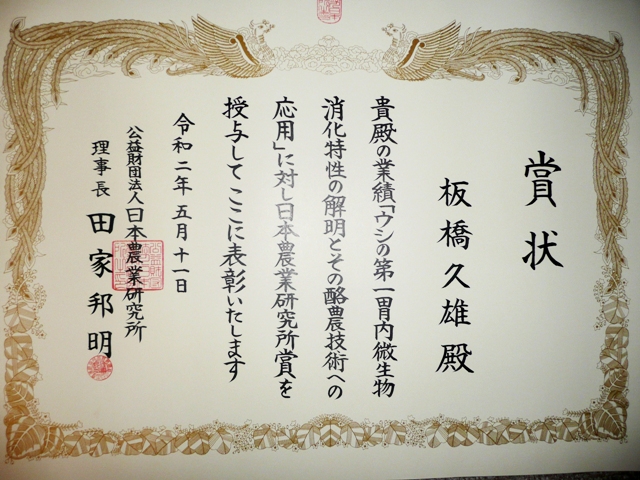 賞状
板橋久雄殿
貴殿の業績「ウシの第一胃内微生物
消化特性の解明とその酪農技術への
応用」に対し日本農業研究所賞を
授与してここに表彰いたします
令和二年五月十一日
公益財団法人日本農業研究所
理事長 田家邦明